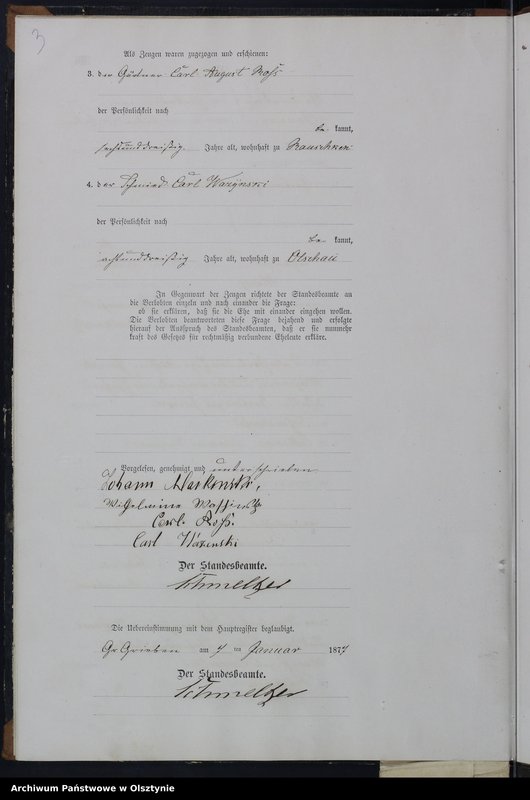 3
Als Zeugen waren zugezogen und erschienen:
3. der Gärtner Carl August Roß
der Persönlichkeit nach
be kannt,
sechsunddreißig Jahre alt, wohnhaft zu Rauschken
4. der Schmied Carl
der Persönlichkeit nach
be kannt,
achtunddreißig Jahre alt, wohnhaft zu Olschau
In Gegenwart der Zeugen richtete der Standesbeamte an
die Verlobten einzeln und nach einander die Frage:
ob sie erklären, daß sie die Ehe mit einander eingehen wollen.
Die Verlobten beantworteten diese Frage bejahend und erfolgte
hierauf der Ausspruch des Standesbeamten, daß er sie nunmehr
kraft des Gesetzes für rechtmäßig verbundene Eheleute erkläre.
Vorgelesen, genehmigt und unterschrieben
Johann
Wilhelmine
Carl Roß.
Carl
Der Standesbeamte.
Schmelzer
Die Uebereinstimmung mit dem Hauptregister beglaubigt.
Gr Grieben am 4 ten Januar 1877
Der Standesbeamte.
Schmelzer
Archiwum Państwowe w Olsztynie